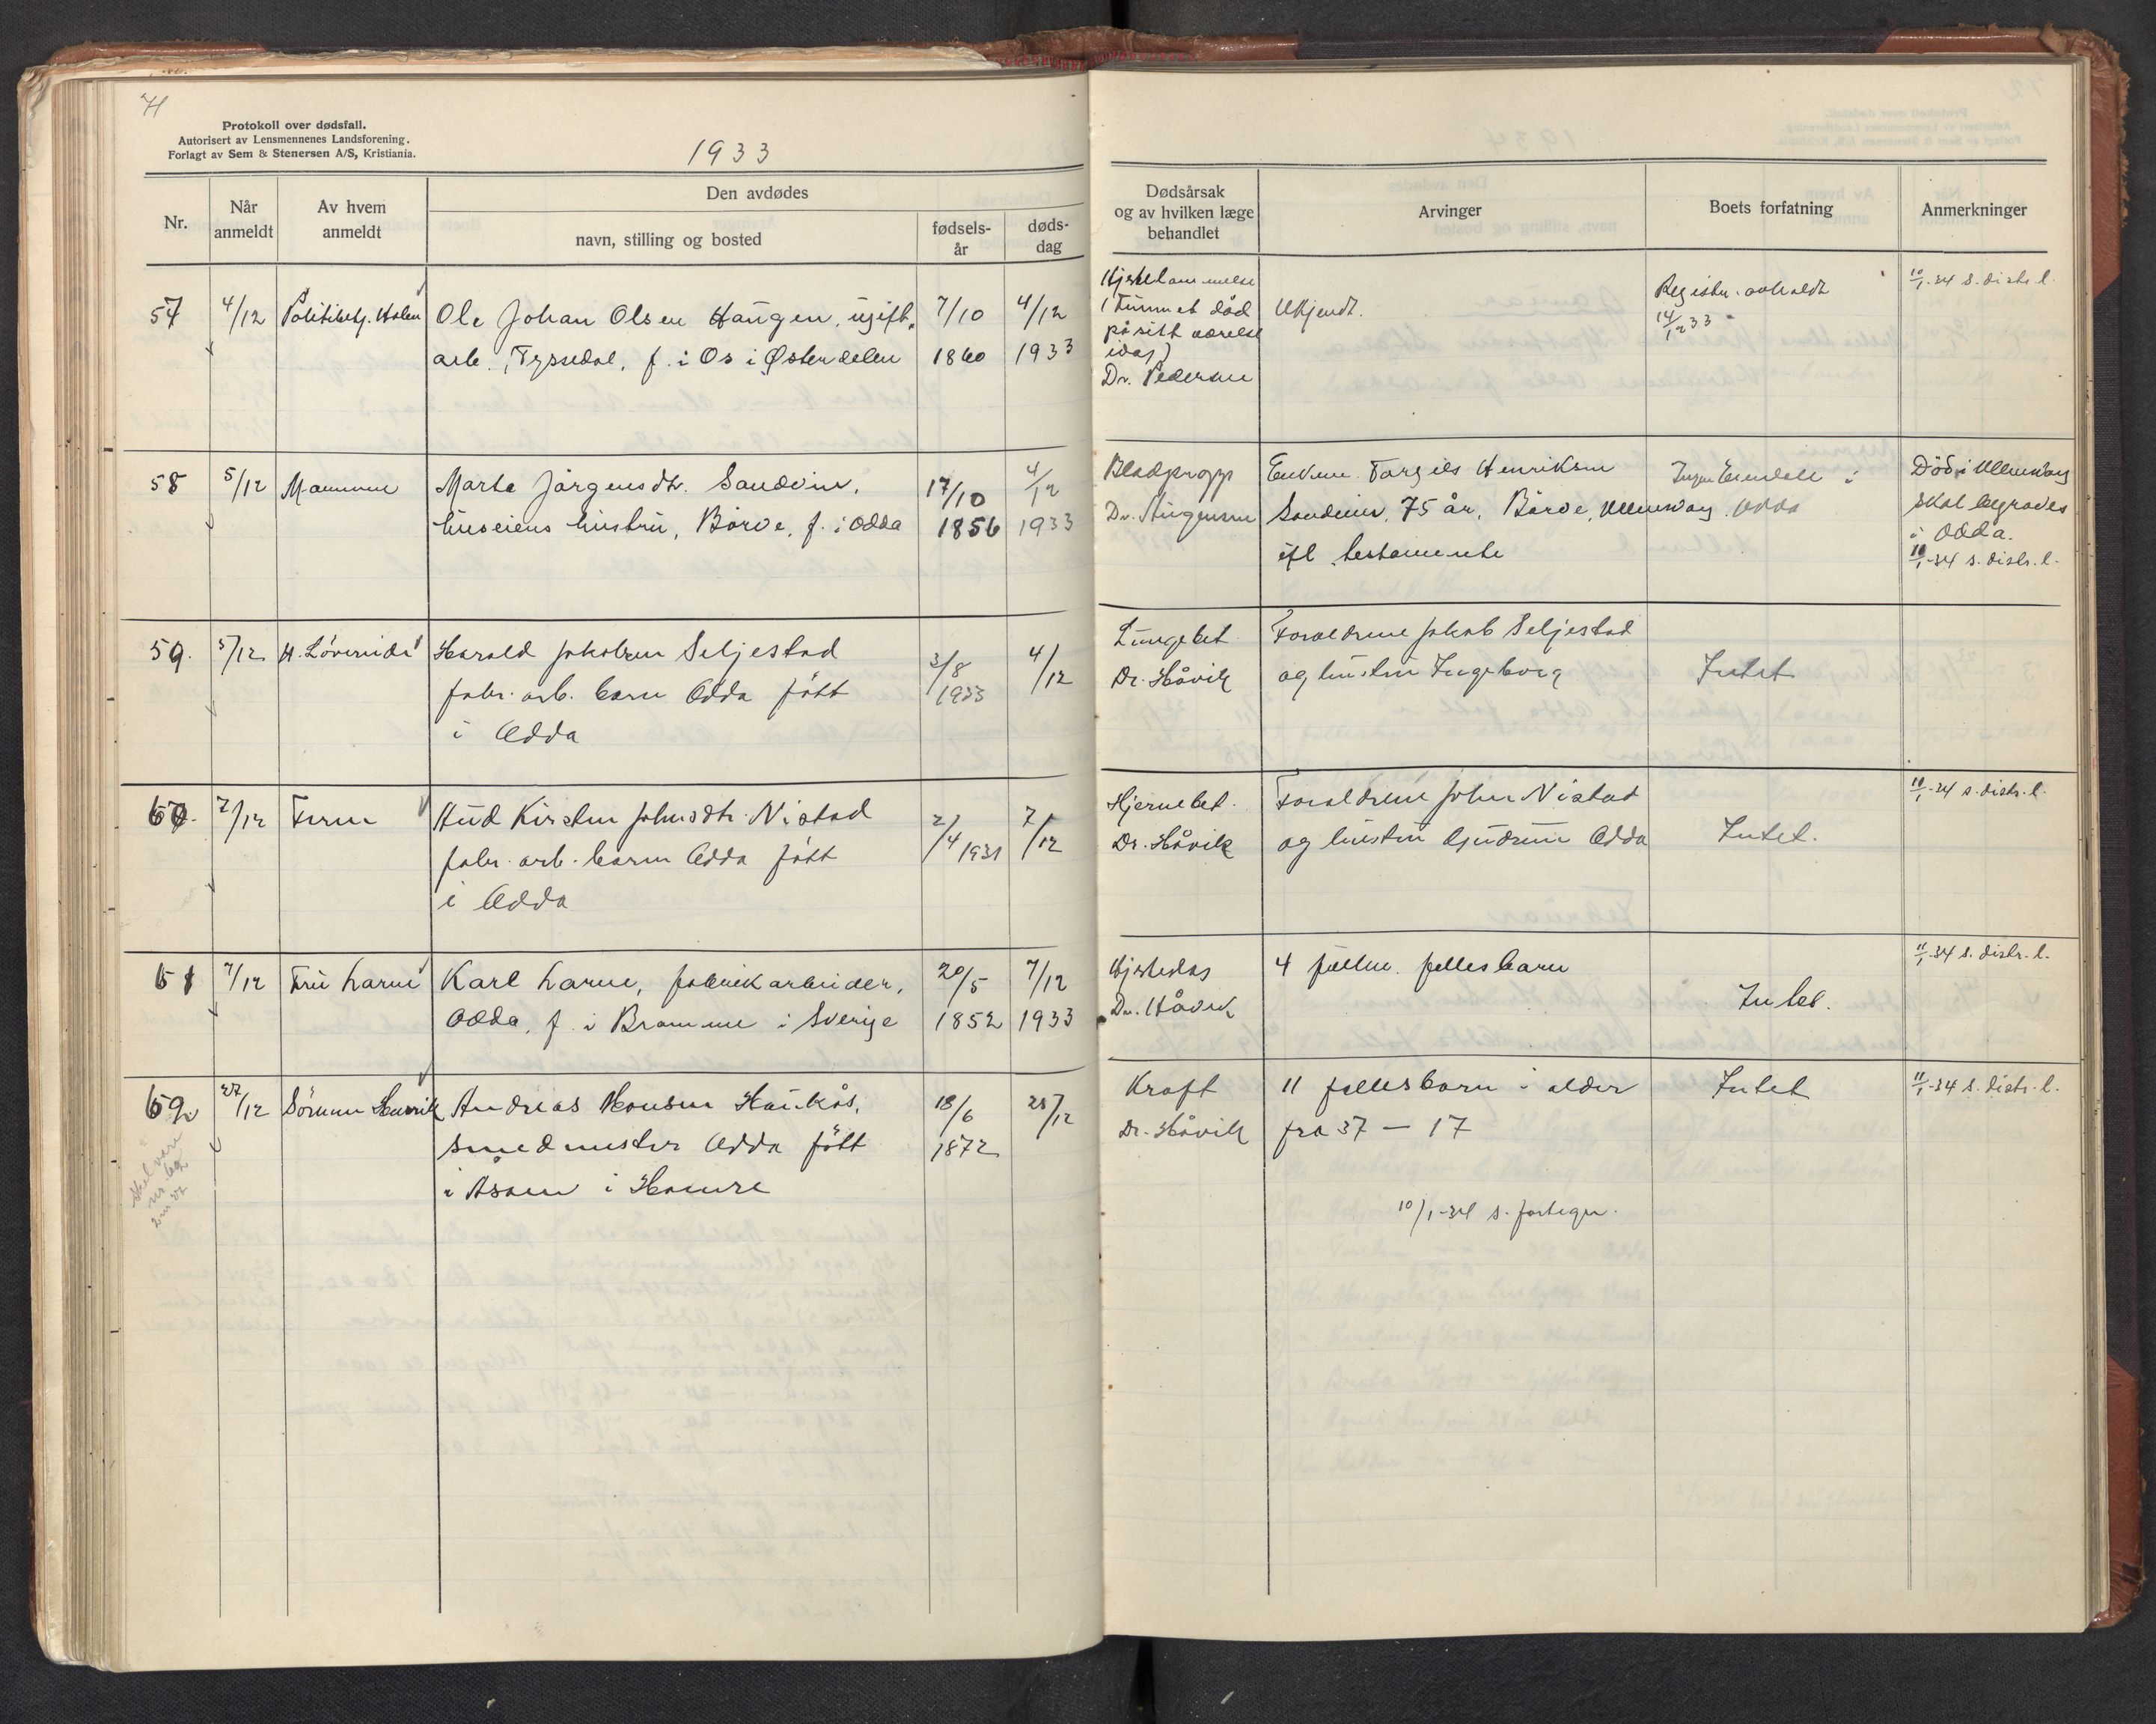 71
Protokoll over dødsfall.
Autorisert av Lensmennenes Landsforening.
Forlagt av Sem & Stenersen A/S, Kristiania.
1933
Nr.
Når anmeldt
Av hvem anmeldt
Den avdødes
navn, stilling og bosted
fødsels-år
døds-dag
Dødsårsak
og av hvilken læge
behandlet
Arvinger
Boets forfatning
Anmerkninger
57
4/12
Politibetj. Holen
Ole Johan Olsen Haugen, ugift,
arb. Tyssedal, f. i Os i Østerdalen
7/10
1860
4/12
1933
Hjertelammelse
(Funnet død
på sitt værelse
idag)
Dr. Pedersen
Ukjendt.
Registr. avholdt
14/12 33
10/1-34 s. distr. l.
58
5/12
Mannen
Marta Jørgensdtr. Sandvin,
huseiens hustru, Børve, f. i Odda
17/10
1856
4/12
1933
Blodpropp
Dr.
Enkem. Torgils Henriksen
Sandvin, 75 år, Børve, Ullensvang
efl. testamente
Ingen Eiendele i
Odda
Død i Ullensvang
skal begraves
i Odda.
10/1-34 s. distr. l.
59.
5/12
H.
Harald Jakobsen Seljestad
fabr. arb. barn Odda født
i Odda
3/8
1933
4/12
Lungebet.
Dr. Håvik
Foreldrene Jakob Seljestad
og hustru Ingeborg
Intet
60.
7/12
Faren
Aud Kirsten Johnsdtr. Nistad
fabr. arb. barn Odda født
i Odda
2/4 1931
7/12
Hjernebet.
Dr. Håvik
Foreldrene John Nistad
og hustru Gudrun Odda
Intet.
11/1-34 s. distr. l.
61
7/12
Fru Larne
Karl Larne, fabrikarbeider,
Odda, f. i Bramme i Sverige
20/5
1852
7/12
1933
Hjerteslag
Dr. Håvik
4 fullm. fellesbarn
Intet.
11/1-34 s. distr. l.
62
27/12
Sønnen Henrik
Andreas Hansen Haukås,
smedmester Odda født
i Åsane i Hamre
18/6
1872
25/12
Kraft
Dr. Håvik
11 fellesbarn i alder
fra 37 — 17
Intet
11/1-34 s. distr. l.
Skal være
nr. 62
10/1-34 s. fortegn.